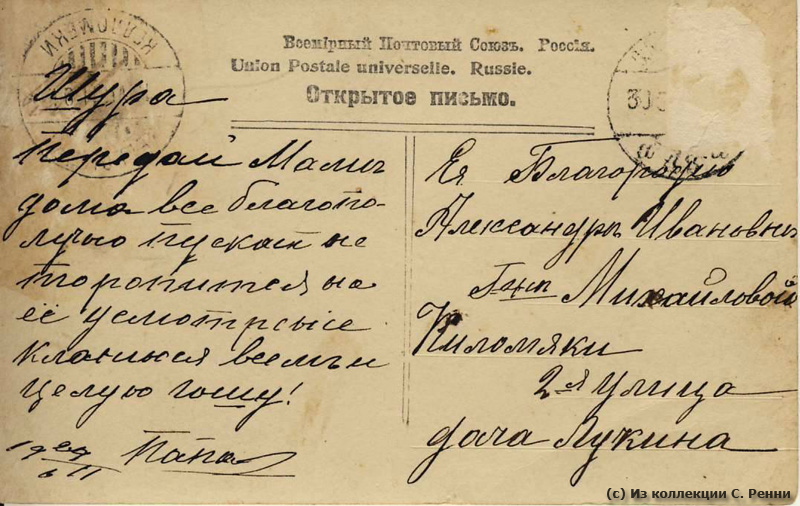 KELLOMÄKI
Всемірный Почтовый Союзъ. Россія.
Union Postale universelle. Russie.
Открытое письмо.
Шура
передай Мамѣ
дома все благопо-
лучно пускай не
торопится на
её усмотрѣніе
кланяюся всемъ и
целую Гошу!
19 29/6 11
Папа
Ея Благородію
Александрѣ Ивановнѣ
Г-жѣ Михайловой
Киломяки
2я улица
дача Лукина
30.
(c) Из коллекции С. Ренни